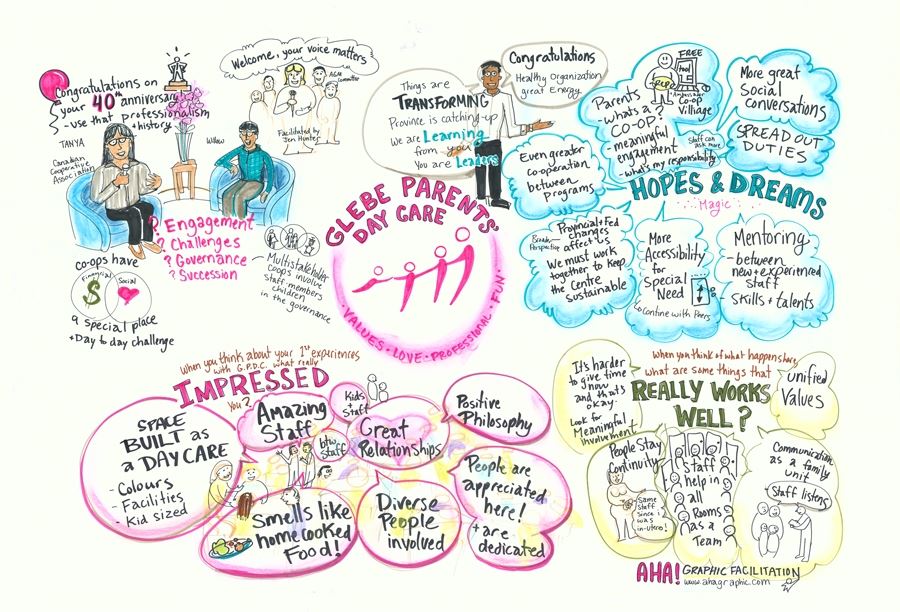 Congratulations on
your 40th anniversary
- use that professionalism
+ history
TANYA
Canadian
Cooperative
Association
Willow
Welcome, your voice matters
AGM
Committee
Facilitated by
Jen Hunter
? Engagement
? Challenges
? Governance
? Succession
Multistakeholder
Coops involve
Staff members
children
in the governance
co-ops have
Financial
Social
$
a special place
+ Day to day challenge
Things are
TRANSFORMING
Province is catching-up
We are Learning
from you
You are Leaders
Congratulations
Healthy Organization
great Energy
GLEBE PARENTS'
DAY CARE
· VALUES · LOVE · PROFESSIONAL · FUN ·
HOPES & DREAMS
Magic
Even greater
co-operation
between
programs
Parents
- whats a
CO-OP?
- meaningful
engagement
- what's my responsibility
FREE
Ambassador
Co-op
Village
Staff can
ask more
More great
Social
conversations
SPREAD OUT
DUTIES
Broader
Perspective
Provincial + Fed
changes
affect us
We must work
together to keep
the Centre
sustainable
More
Accessibility
for
Special
Need
to continue with Peers
Mentoring
- between
new + experienced
staff
Skills + talents
when you think about your 1st experiences
with G.P.D.C. what really
IMPRESSED
You?
SPACE
BUILT as
a DAY CARE
- Colours
- Facilities
- Kid sized
Amazing
Staff
Kids
+
Staff
btw
Staff
Great
Relationships
Positive
Philosophy
Smells like
home cooked
Food!
Diverse
People
involved
People are
appreciated
here!
+ are
dedicated
when you think of what happens here,
what are some things that
REALLY WORKS
WELL?
It's harder
to give time
now
and that's
okay.
Look for
Meaningful
Involvement
unified
Values
People Stay
Continuity
Same
Staff
Since I
was
in-utero!
Staff
help in
all
Rooms
as a
Team
Communication
as a family
unit
Staff listens
AHA! GRAPHIC FACILITATION
www.ahagraphic.com